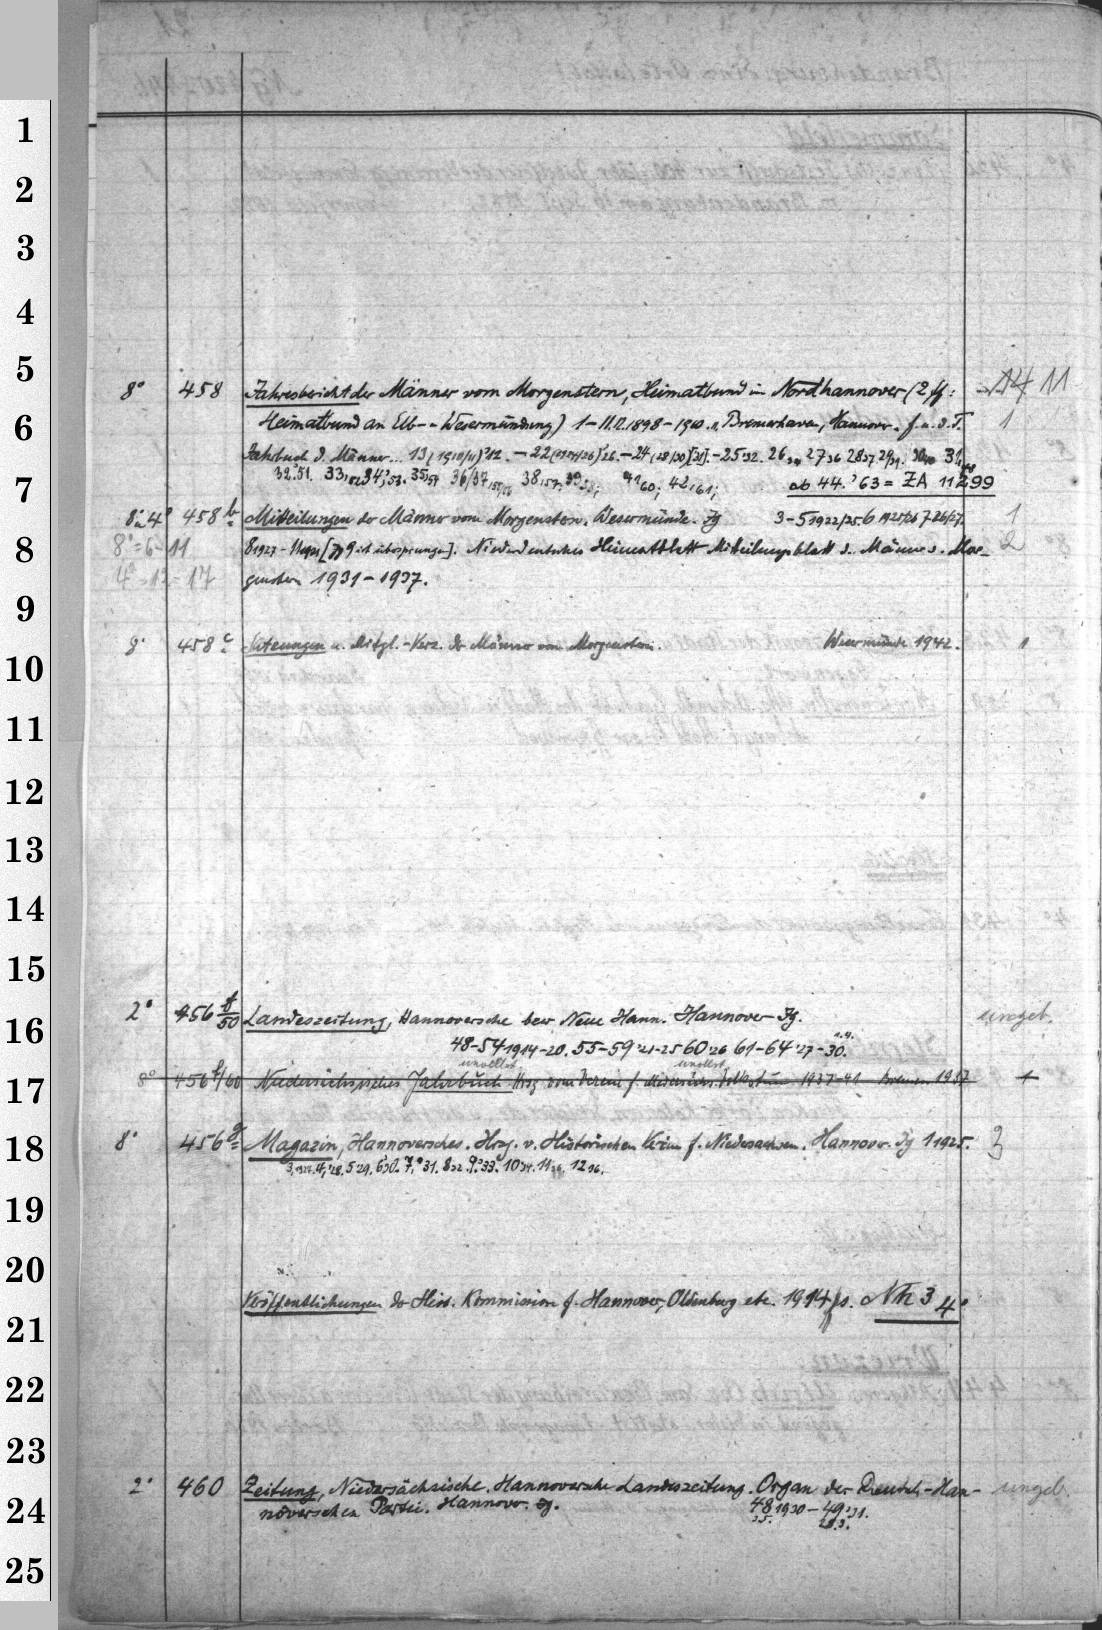 1
2
3
4
5
8° 458 Jahresbericht der Männer vom Morgenstern, Heimatbund in Nordhannover (2 ff: 14 11
6
Heimatbund an Elb- u Wesermündung) 1- 1898-1910. Bremerhaven, Hannov. f. u. d. T. 1
Jahrbuch d. Männer... 13 (1910/11) '12. - 22 (1924/26) '26. - 24 (28/30) [31]. - 25 '32. 26 34 27 36 28 37 29 39. 30 31
7
32 '51. 33, '52 34, '53. 35, '54 36/37, 38, '57. 39 58; 41 60; 42, '61; ab 44. '63 = ZA 11299
8° u 4° 458 b Mitteilungen der Männer vom Morgenstern. Wesermünde. Jg 3-5 1922/25 6 1925/26 7 26/27. 1
8
8° = 6-11 8 1927 - 11 [Jg 9 ist übersprungen]. Niederdeutsches Heimatblatt Mitteilungsblatt d. Männer v. Mor- 2
4° = 12 = 17 genstern 1931-1937.
9
8° 458 c Satzungen u. Mitgl.-Verz. der Männer vom Morgenstern. Wesermünde 1942. 1
10
11
12
13
14
15
2° 456 f/50 Landeszeitung, Hannoversche bzw Neue Hann. Hannover Jg. ungeb.
16
48-54 1914-20. 55-59 '21-25 60 '26 61-64 '27-30.
unvollst. unvollst.
17
8° 456 f/60 Niedersächsisches Jahrbuch Hrsg vom Verein f. Niedersächs. Volkstum 1937-41 Bremen 1937 1
18
8° 456 g Magazin, Hannoversches. Hrsg. v. Historischen Verein f. Niedersachsen. Hannov. Jg 1 1925. 3
3, 1927. 4, '28. 5 '29. 6 '30. 7, '31. 8 '32. 9, '33. 10 '34. 11 12 '36.
19
20
Veröffentlichungen der Hist. Kommission f. Hannover, Oldenburg etc. 1914 ff s. Nh 3 4°
21
22
23
2° 460 Zeitung, Niedersächsische. Hannoversche Landeszeitung. Organ der Deutsch-Han- ungeb.
24
növerschen Partei. Hannov. Jg. 48 1930 - 49 '31.
25